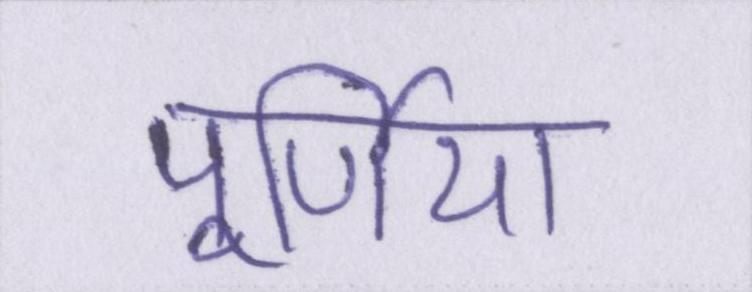 पूर्णिया